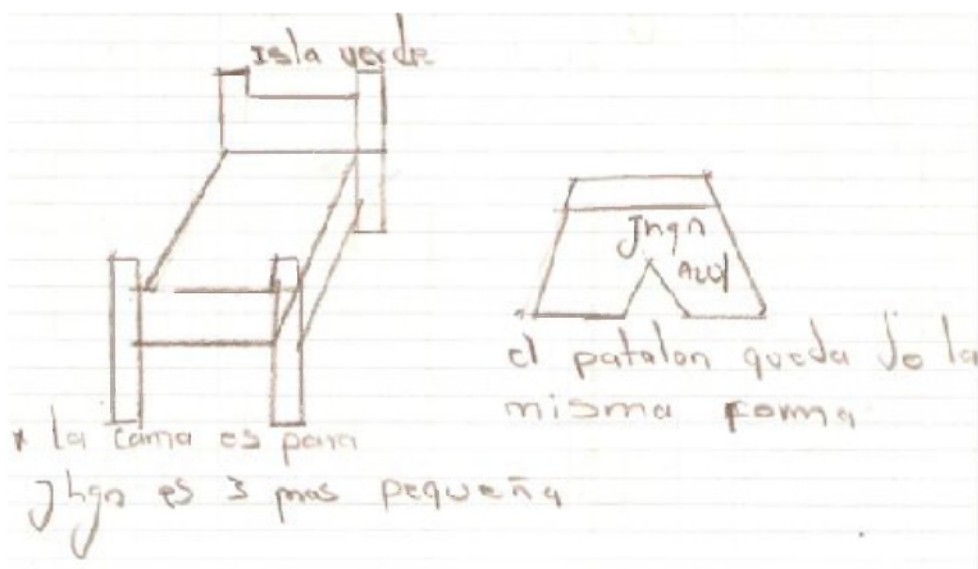 Isla verde
Jhgn
Azul
el patalon queda Je la
misma forma
* la cama es para
Jhgn es 3 mas pequeña